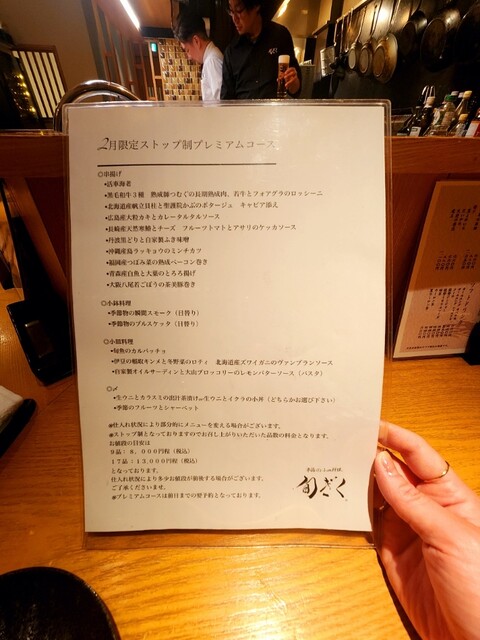 2月限定ストップ制プレミアムコース
◎串揚げ
•活車海老
•黒毛和牛3種 熟成師つむぐの長期熟成肉、若牛とフォアグラのロッシーニ
•北海道産帆立貝柱と聖護院かぶのポタージュ キャビア添え
•広島産大粒カキとカレータルタルソース
•長崎産天然寒鰆とチーズ フルーツトマトとアサリのケッカソース
•丹波黒どりと自家製ふき味噌
•沖縄産島ラッキョウのミンチカツ
•福岡産つぼみ菜の熟成ベーコン巻き
•青森産白魚と大葉のとろろ揚げ
•大阪八尾若ごぼうの茶美豚巻き
◎小鉢料理
•季節物の瞬間スモーク(日替り)
•季節物のブルスケッタ(日替り)
◎小皿料理
•旬魚のカルパッチョ
•伊豆の蝦蛄キンメと冬野菜のロティ 北海道産ズワイガニのヴァンブランソース
•自家製オイルサーディンと大山ブロッコリーのレモンバターソース(パスタ)
◎〆
•生ウニとカラスミの出汁茶漬けor生ウニとイクラの小丼(どちらかお選び下さい)
•季節のフルーツとシャーベット
※仕入れ状況により部分的にメニューを変える場合がございます。
※ストップ制となっておりますのでお召し上がりいただいた品数の料金となります。
お値段の目安は
9品:8,000円程(税込)
17品:13,000円程(税込)
となっております。
仕入れ状況により多少お値段が前後する場合がございます。
ご了承くださいませ。
※プレミアムコースは前日までの要予約となっております。
旬ざく